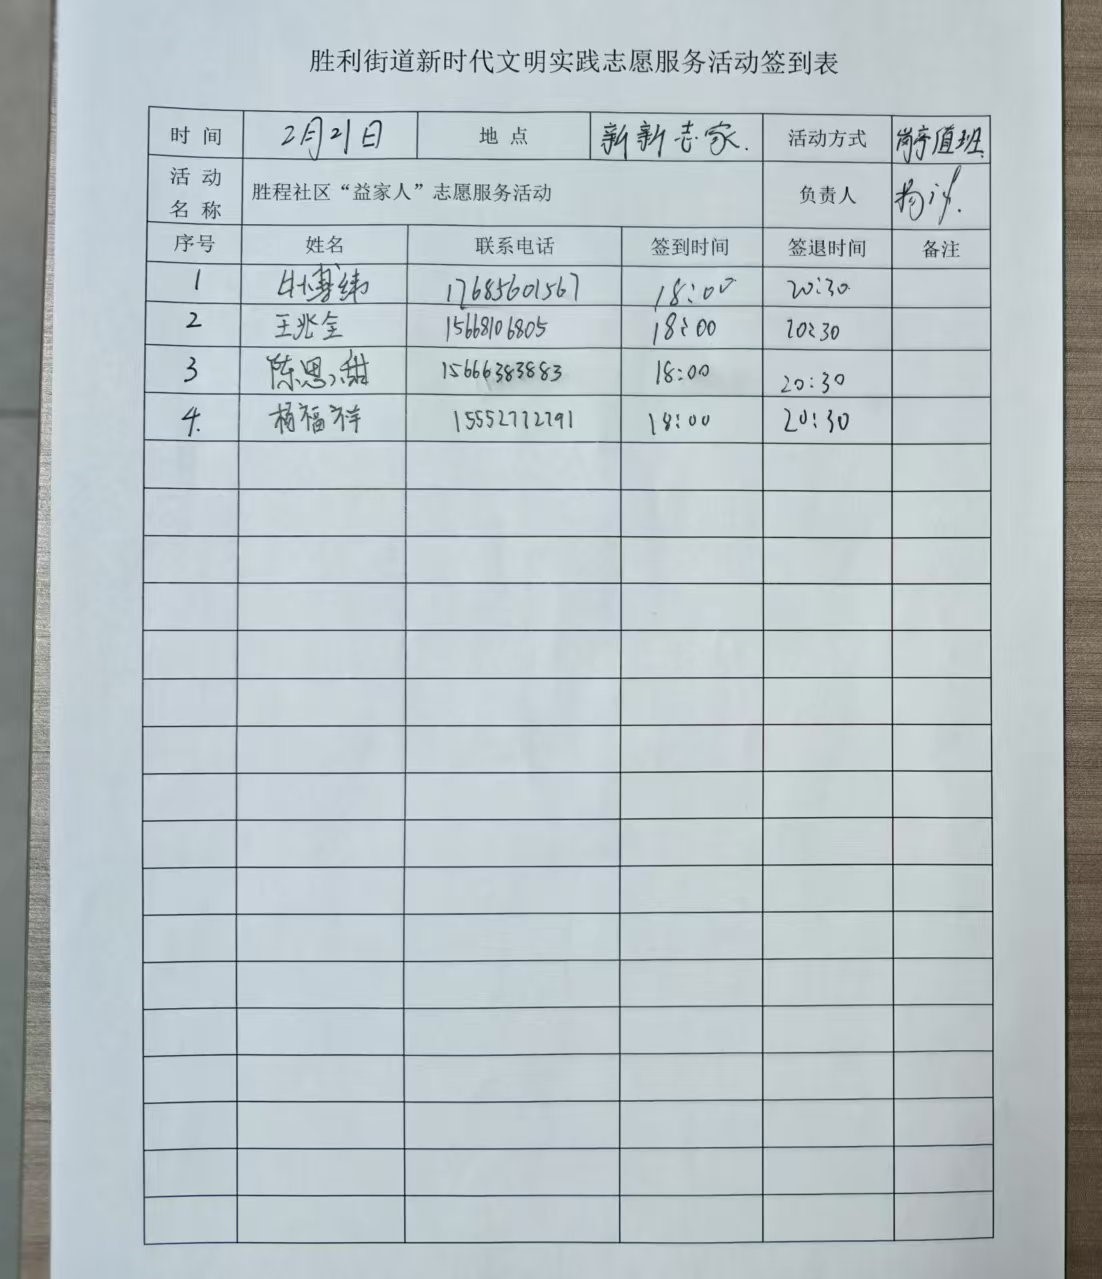 胜利街道新时代文明实践志愿服务活动签到表
时间 2月21日 地点 新新志家. 活动方式 岗亭值班
活动名称 胜程社区“益家人”志愿服务活动 负责人
序号 姓名 联系电话 签到时间 签退时间 备注
1 博纬 17685601567 18:00 20:30
2 王兆全 15668106805 18:00 20:30
3 陈思甜 15666383883 18:00 20:30
4. 杨福祥 15552772791 18:00 20:30